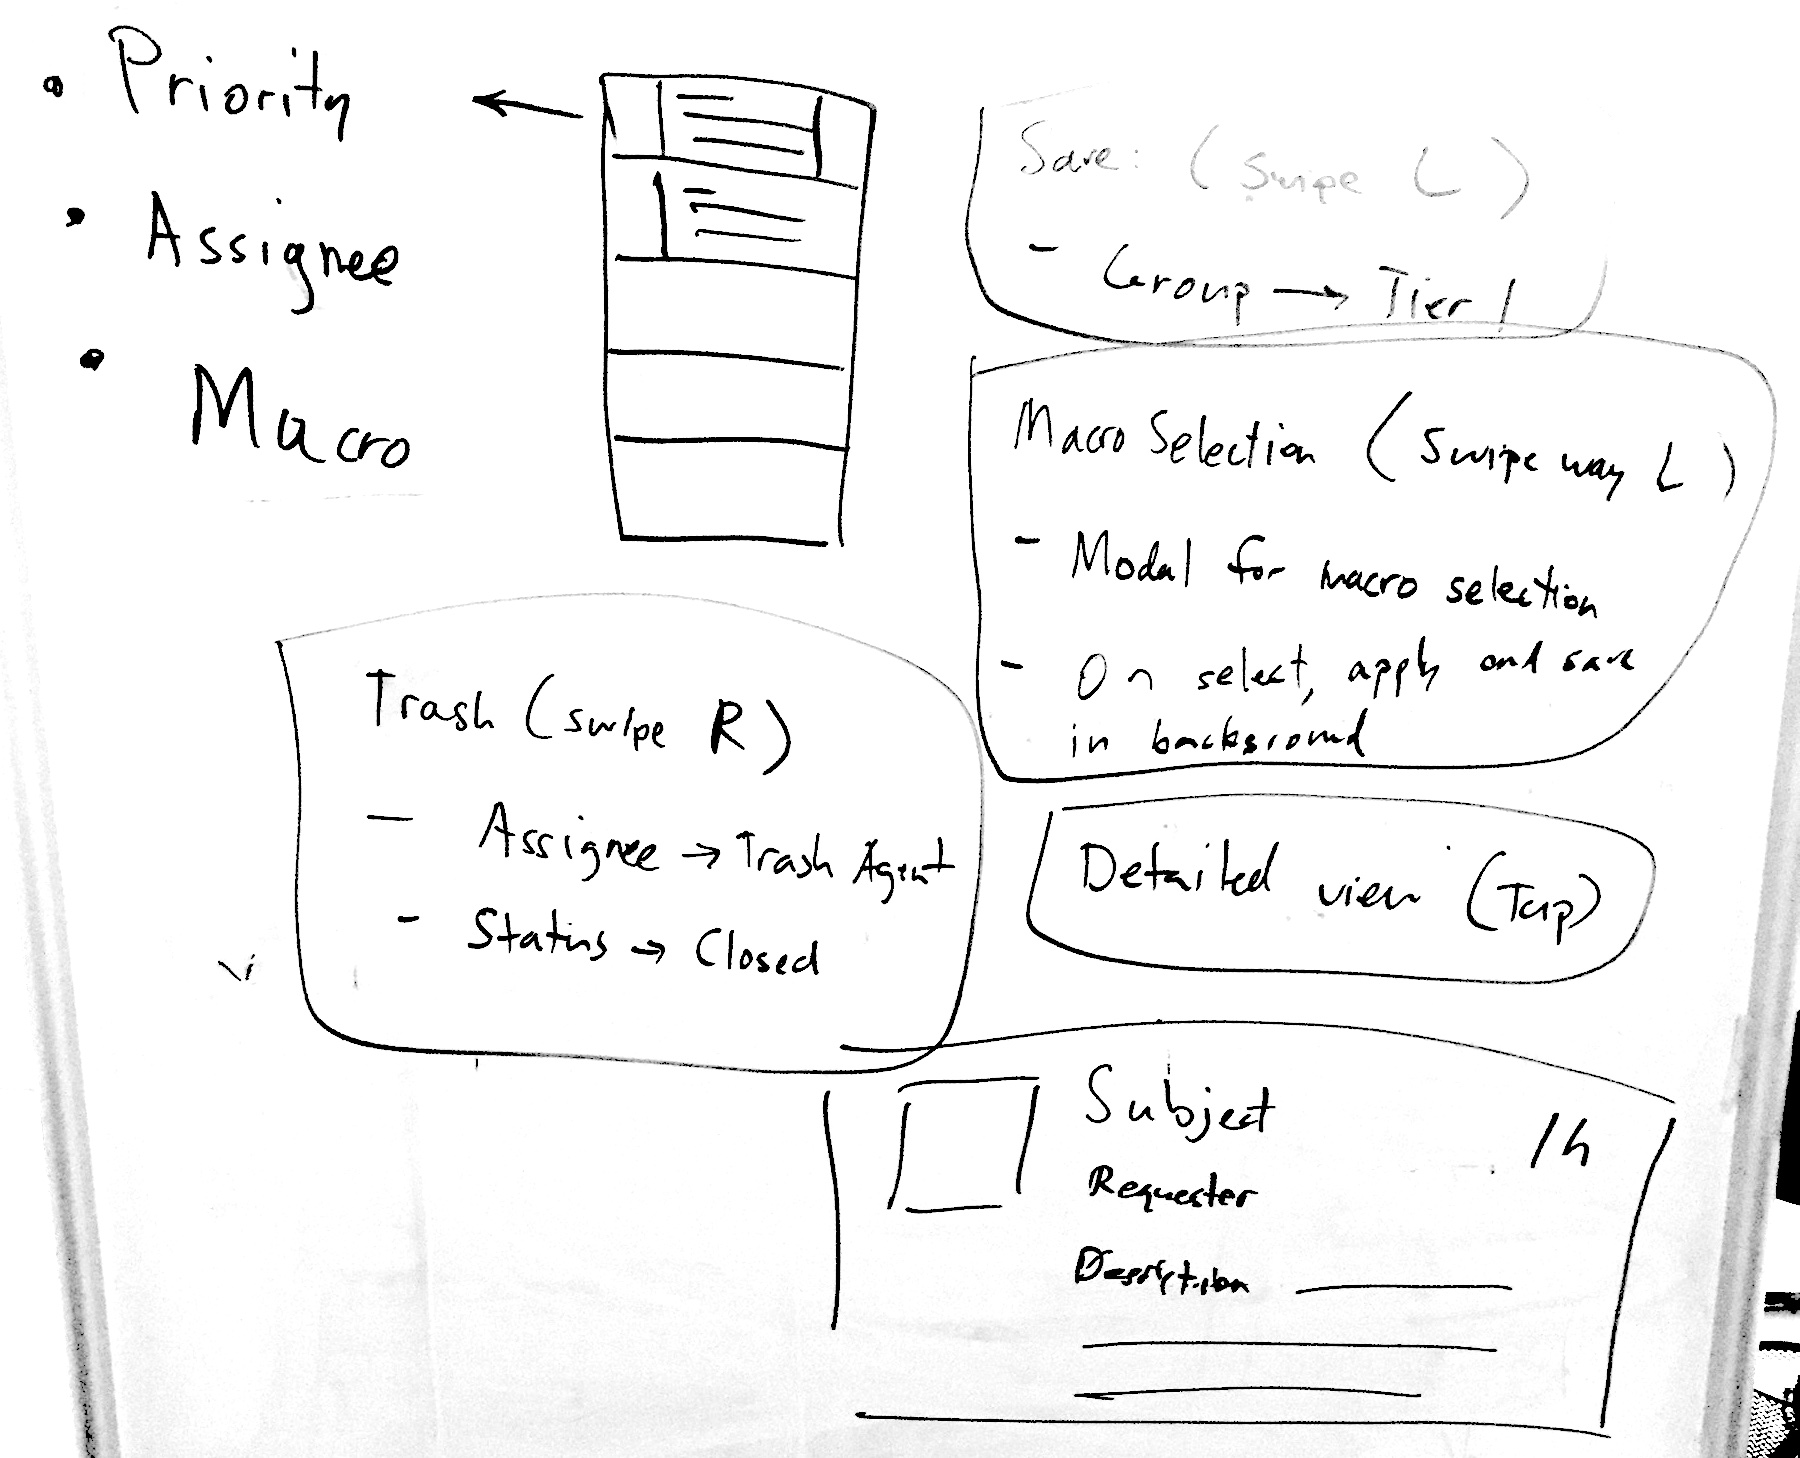 • Priority
• Assignee
• Macro
Save: (Swipe L)
- Group → Tier 1
Macro Selection (Swipe way L)
- Modal for macro selection
- On select, apply and save
in background
Trash (swipe R)
- Assignee → Trash Agent
- Status → Closed
Detailed view (Tap)
Subject
1h
Requester
Description